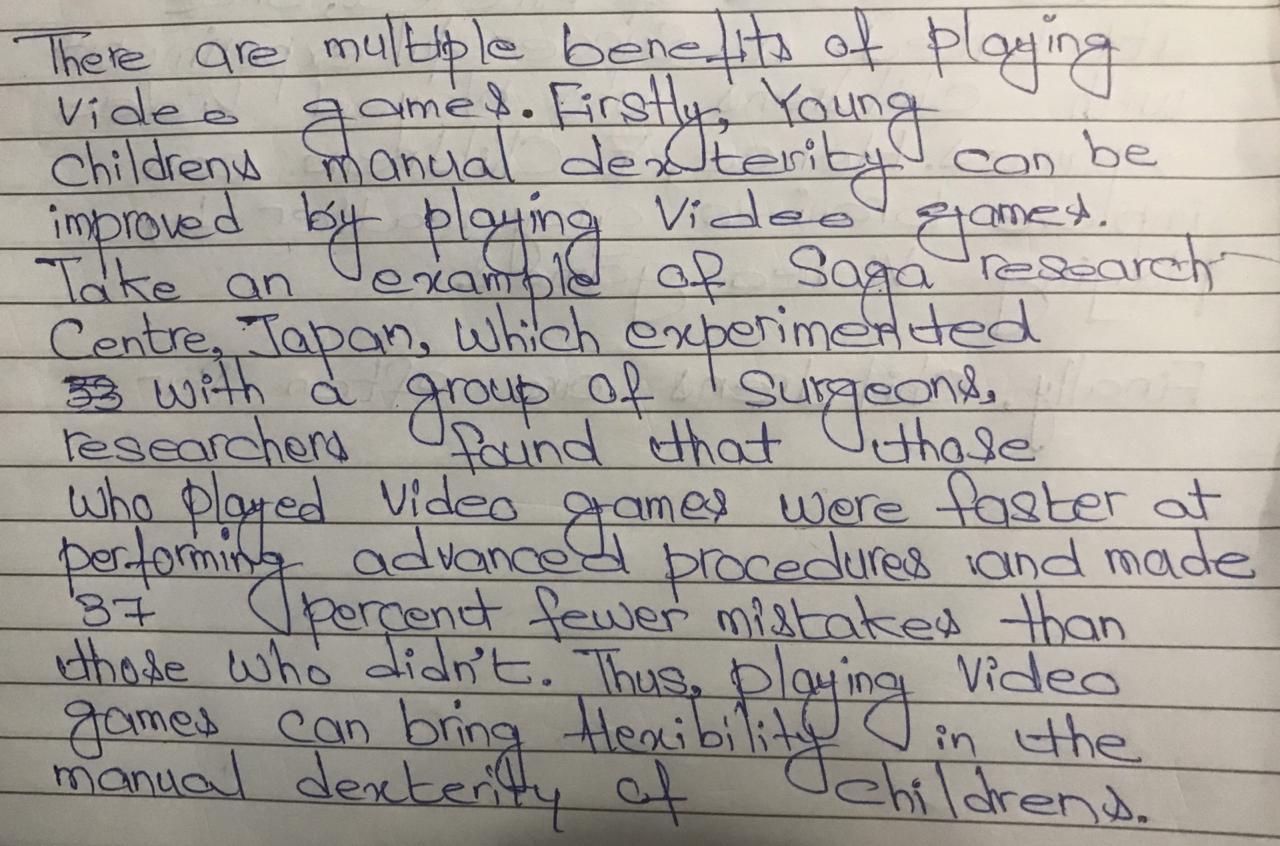 There are multiple benefits of playing
video games. Firstly, Young
childrens manual dexterity can be
improved by playing video games.
Take an example of Saga research
Centre, Japan, which experimented
with a group of surgeons,
researchers found that those
who played video games were faster at
performing advanced procedures and made
37 percent fewer mistakes than
those who didn't. Thus, playing video
games can bring flexibility in the
manual dexterity of childrens.